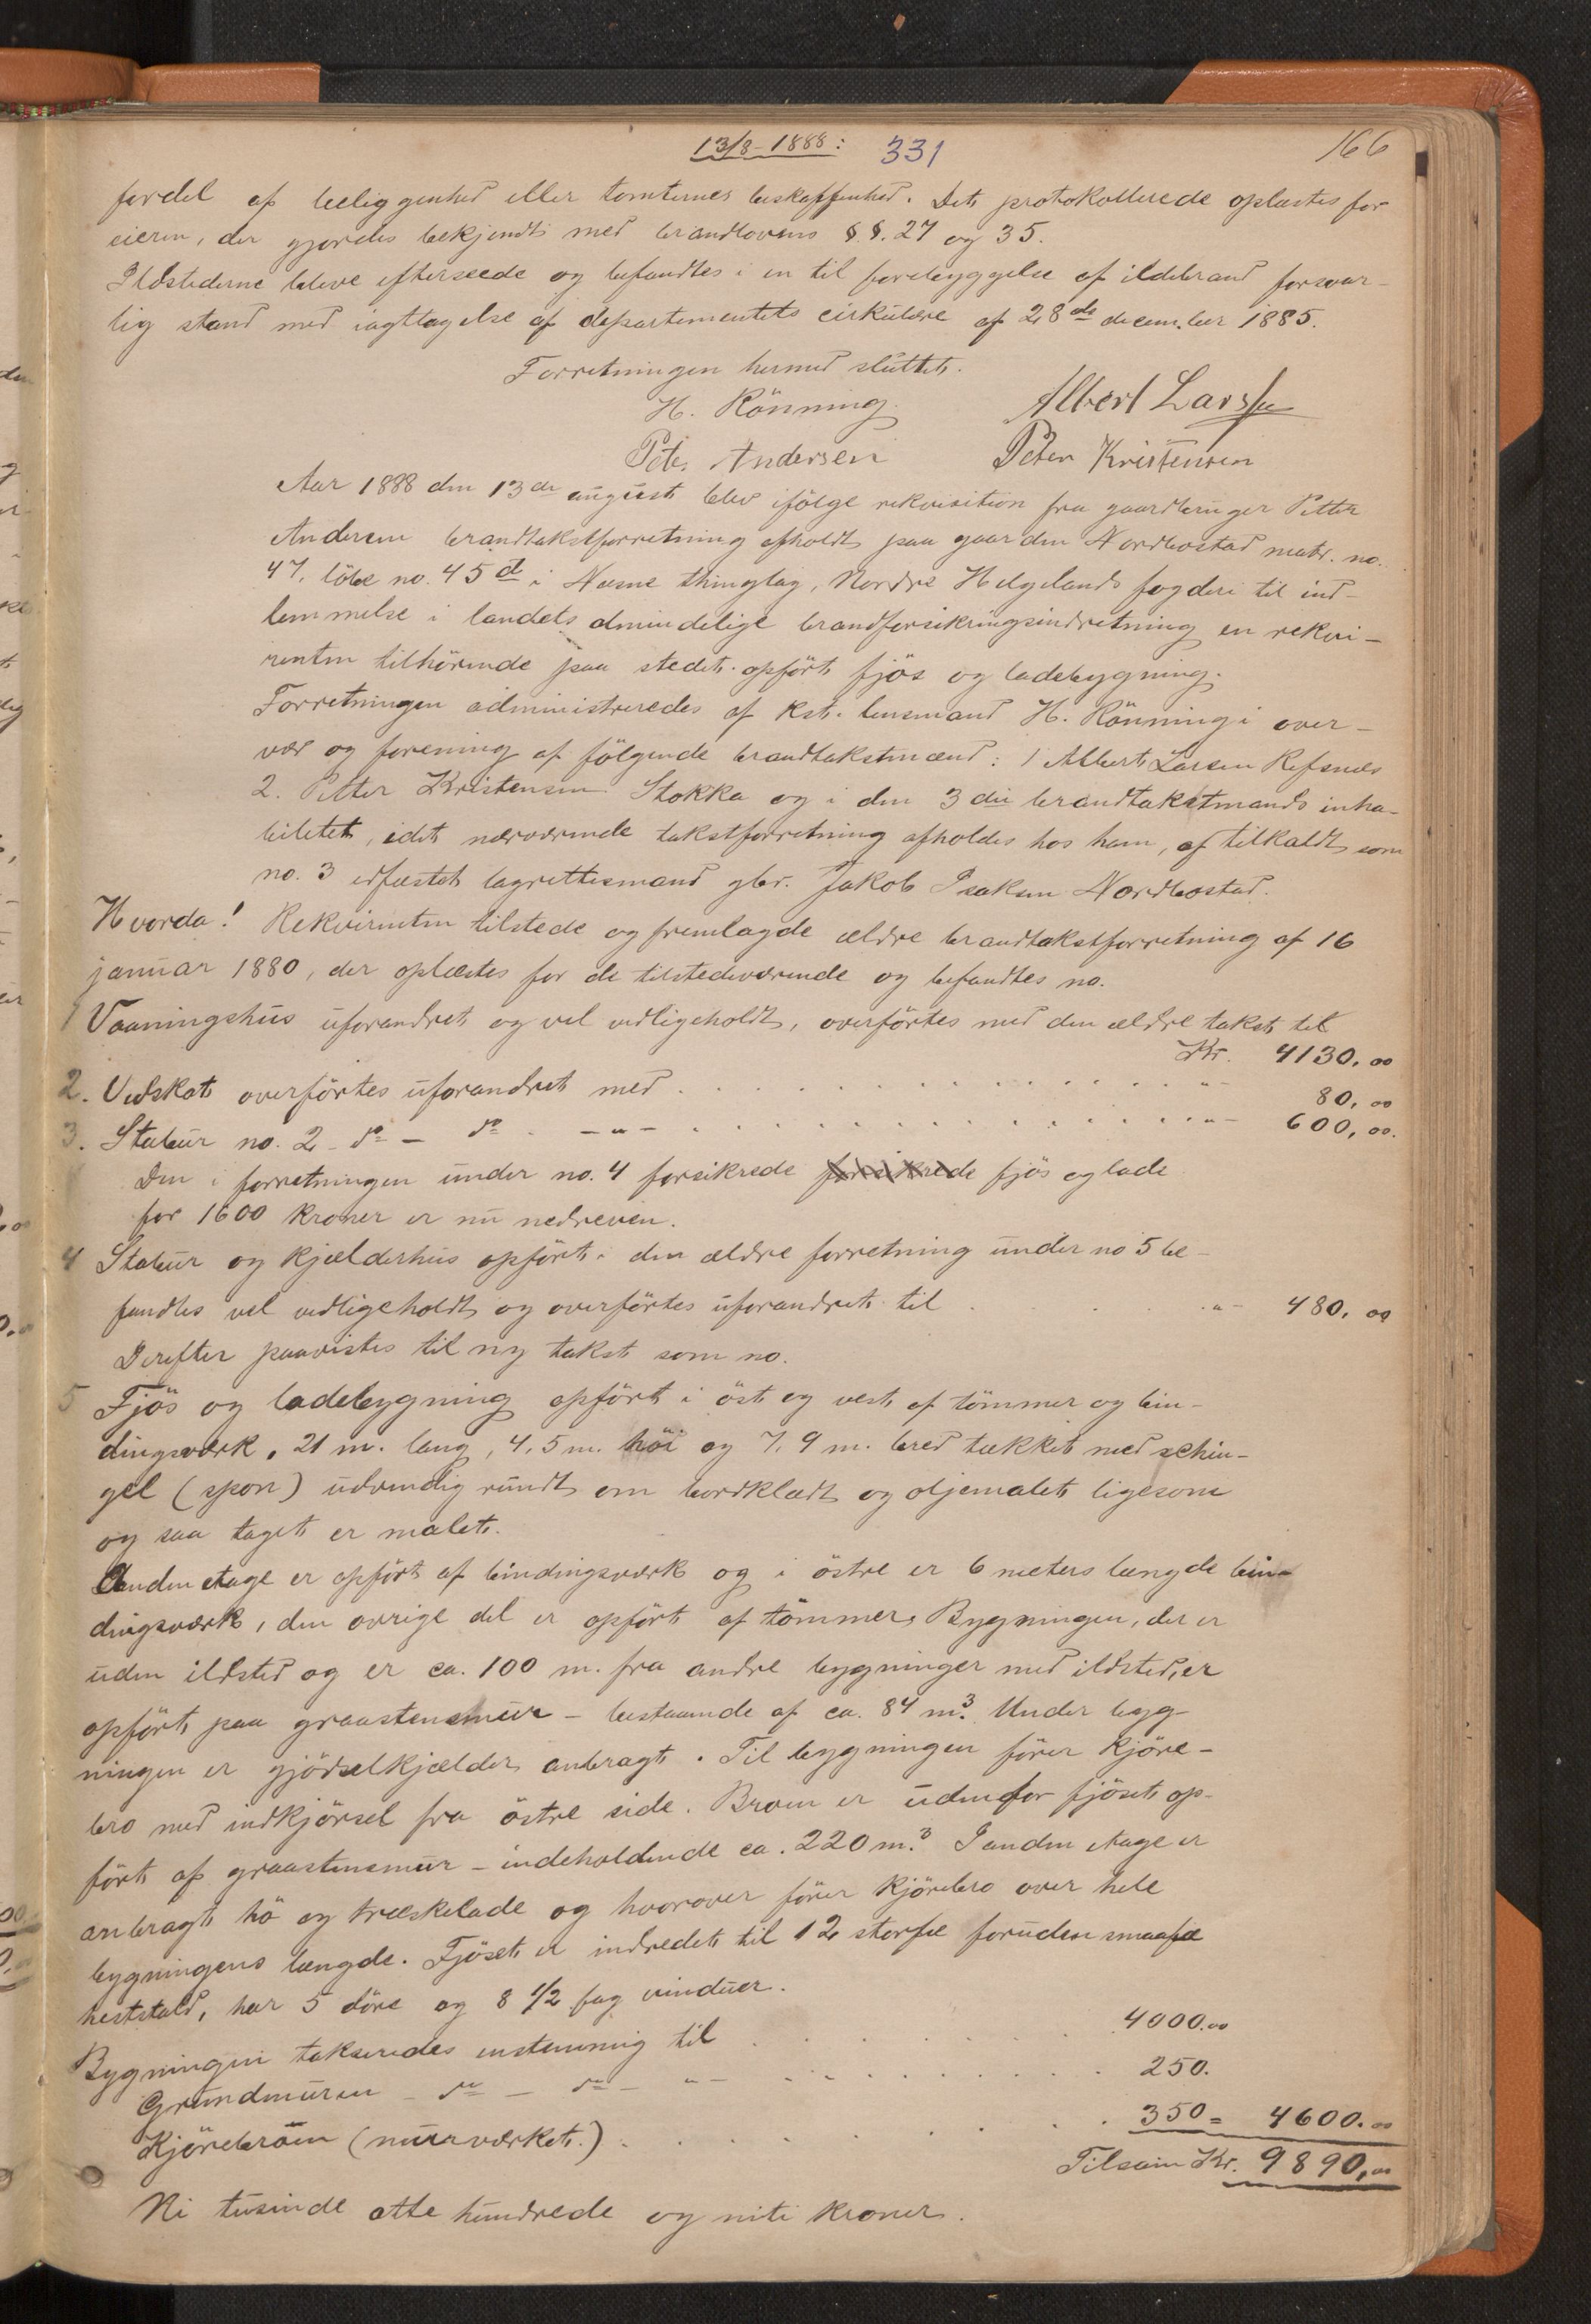 13/8-1888: 331 166
fordel af beliggenhed eller tomternes beskaffenhed. Det protokollerede oplæstes for
eieren, der gjordes bekjendt med brandlovens §.§. 27 og 35.
Ildstederne bleve efterseede og befandtes i en til forebyggelse af ildebrand forsvar-
lig stand med iagttagelse af departementets cirkulære af 28de december 1885.
Forretningen hermed sluttet.
H. Rönning. Albert Larssen
Peter Andersen Peter Kristensen
Aar 1888 den 13de august blev ifölge rekvisition fra gaardbruger Petter
Andersen brandtakstforretning afholdt paa gaarden Nordbostad matr. no.
47, löbe no. 45d i Næsne thinglag, Nordre Helgelands fogderi til ind-
lemmelse i landets almindelige brandforsikringsindretning en rekvi-
renten tilhörende paa stedet opfört fjös og ladebygning.
Forretningen administreredes af kst. lensmand H. Rönning i over-
vær og forening af fölgende brandtakstmænd: 1 Albert Larsen Refsnes
2. Petter Kristensen Stokka og i den 3die brandtakstmands inha-
bilitet, idet nærværende takstforretning afholdes hos ham, af tilkaldt som
no. 3 edfæstet lagrettesmand gbr. Jakob Isaksen Nordbostad.
Hvorda! Rekvirenten tilstede og fremlagde ældre brandtakstforretning af 16
januar 1880, der oplæstes for de tilstedeværende og befandtes no.
1 Vaaningshus uforandret og vel vedligeholdt, overförtes med den ældre takst til
Kr. 4130,00
2. Vedskot overförtes uforandret med . . . . . . -"- 80,00
3. Stabur no. 2 do - do - -"- . . . . . . -"- 600,00.
Den i forretningen under no. 4 forsikrede forsikrede fjös og lade
for 1600 kroner er nu nedreven.
4 Stabur og kjælderhus opfört i den ældre forretning under no 5 be-
fandtes vel vedligeholdt og overförtes uforandret til . . . -"- 480,00
Derefter paavistes til ny takst som no.
5 Fjös og ladebygning opfört i öst og vest af tömmer og bin-
dingsværk, 21 m. lang, 4,5 m. höi og 7,9 m. bred tækket med schin-
gel (spon) udvendig rundt om bordklædt og oljemalet ligesom
og saa taget er malet.
Anden etage er opfört af bindingsværk og i östre er 6 meters længde bin-
dingsværk, den övrige del er opfört af tömmer. Bygningen, der er
uden ildsted og er ca. 100 m. fra andre bygninger med ildsted, er
opfört paa graastensmur - bestaaende af ca. 84 m3. Under byg-
ningen er gjödselkjælder anbragt. Til bygningen förer kjöre-
bro med indkjörsel fra östre side. Broen er udenfor fjöset op-
fört af graastensmur - indeholdende ca. 220 m.3 I anden etage er
anbragt hö og træskelade og hvorover förer kjörebro over hele
bygningens længde. Fjöset er indredet til 12 storfæ foruden smaafæ
heststald, har 5 döre og 8 1/2 fag vinduer.
Bygningen takseredes enstemmig til . . . . 4000.00
Grundmuren - do - do - "- . . . . 250.
Kjörebroen (murværket.) . . . . 350 = 4600.00
Tilsam Kr. 9890,00
Ni tusinde otte hundrede og niti kroner.